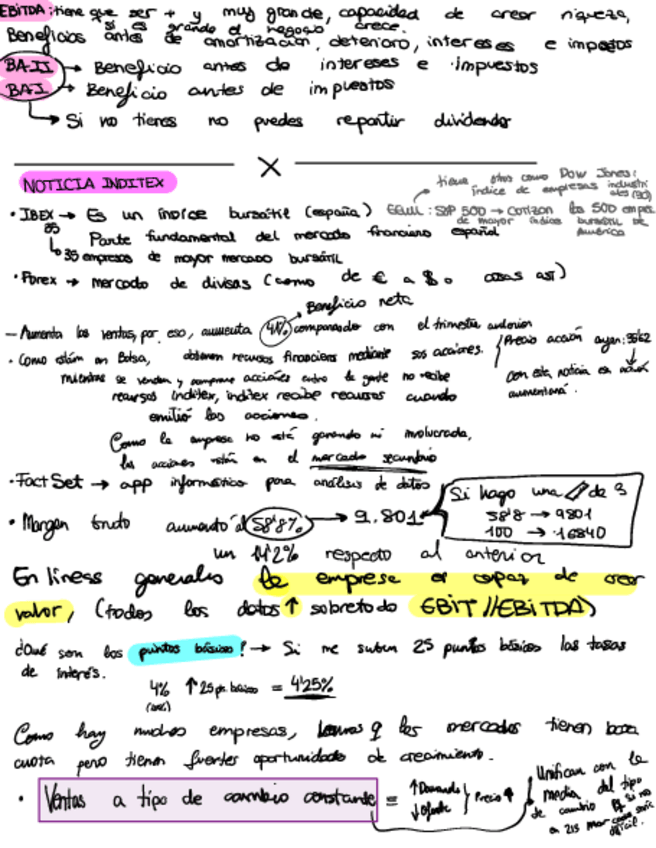 EBITDA: tiene que ser + y muy grande, capacidad de crear riqueza,
si es grande el negocio crece.
Beneficios antes de amortización, deterioro, intereses e impuestos
BAII → Beneficio antes de intereses e impuestos
BAI → Beneficio antes de impuestos
↳ Si no tienes no puedes repartir dividendo
X
NOTICIA INDITEX
tiene otros como Dow Jones:
índice de empresas industriales (30)
• IBEX → Es un índice bursátil (España) EEUU: S&P 500 → cotizan las 500 empre
35
de mayor índice bursátil de América
Parte fundamental del mercado financiero español
↳ 35 empresas de mayor mercado bursátil
• Forex → mercado de divisas (como de € a $ o cosas así)
Beneficio neto
— Aumenta las ventas, por eso, aumenta 41% comparado con el trimestre anterior
• Como están en Bolsa, obtienen recursos financieros mediante sus acciones.
Precio acción ayer: 35'62
con esta noticia la acción aumentará.
mientras se venden y compran acciones entre la gente no recibe
recursos Inditex, inditex recibe recursos cuando
emitió las acciones.
Como la empresa no está ganando ni involucrada,
las acciones están en el mercado secundario
• Fact Set → app informática para análisis de datos
Si hago una de 3
58'8 → 9801
100 → 16840
• Margen bruto aumentó al 58'8% → 9.801
un 11'2% respecto al anterior
En líneas generales la empresa es capaz de crear
valor, (todos los datos ↑ sobretodo EBIT // EBITDA)
¿Qué son los puntos básicos? → Si me suben 25 puntos básicos las tasas
de interés.
4% ↑ 25 pt. básico = 4'25%
Como hay muchas empresas, los mercados tienen baja
cuota pero tienen fuertes oportunidades de crecimiento.
• Ventas a tipo de cambio constante = ↑Demanda ↓Oferta } Precio ↑
Unifican con la
media del tipo
de cambio si no
en 213 mercados sería
difícil.